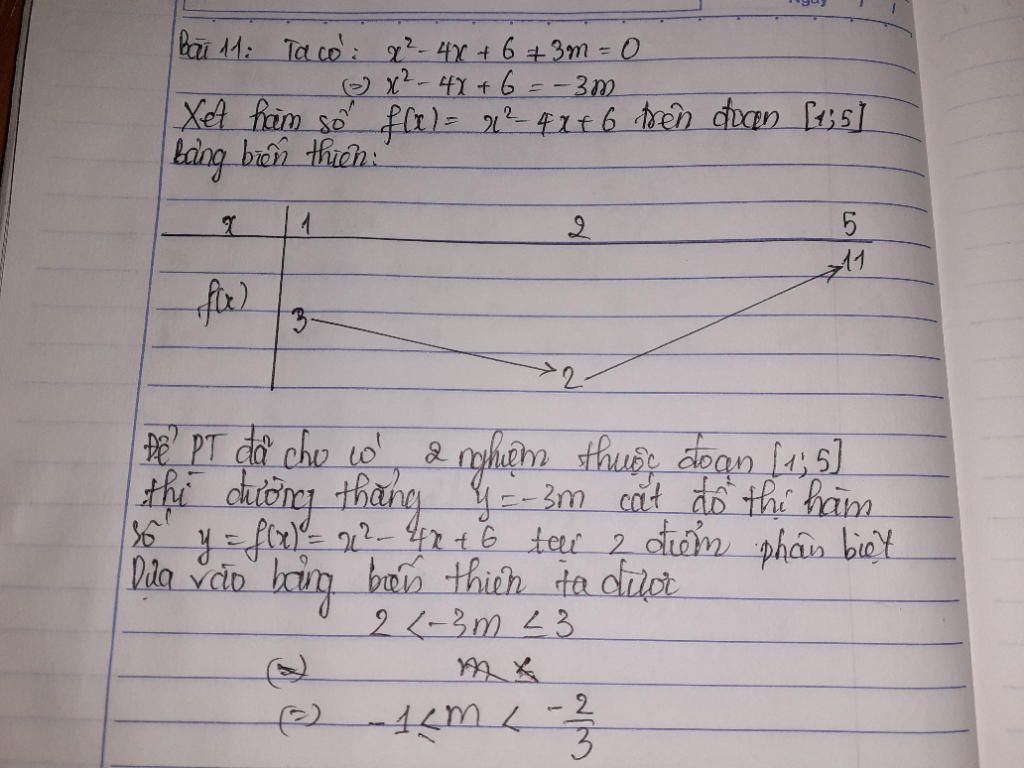 Ngày / /
Bài 11: Ta có: x² - 4x + 6 + 3m = 0
(=) x² - 4x + 6 = -3m
Xét hàm số f(x) = x² - 4x + 6 trên đoạn [1;5]
Bảng biến thiên:
x 1 2 5
11
f(x)
3
2
Để PT đã cho có 2 nghiệm thuộc đoạn [1;5]
thì đường thẳng y = -3m cắt đồ thị hàm
số y = f(x) = x² - 4x + 6 tại 2 điểm phân biệt
Dựa vào bảng biến thiên ta được
2 < -3m ≤ 3
(=) -1 ≤ m < -2/3